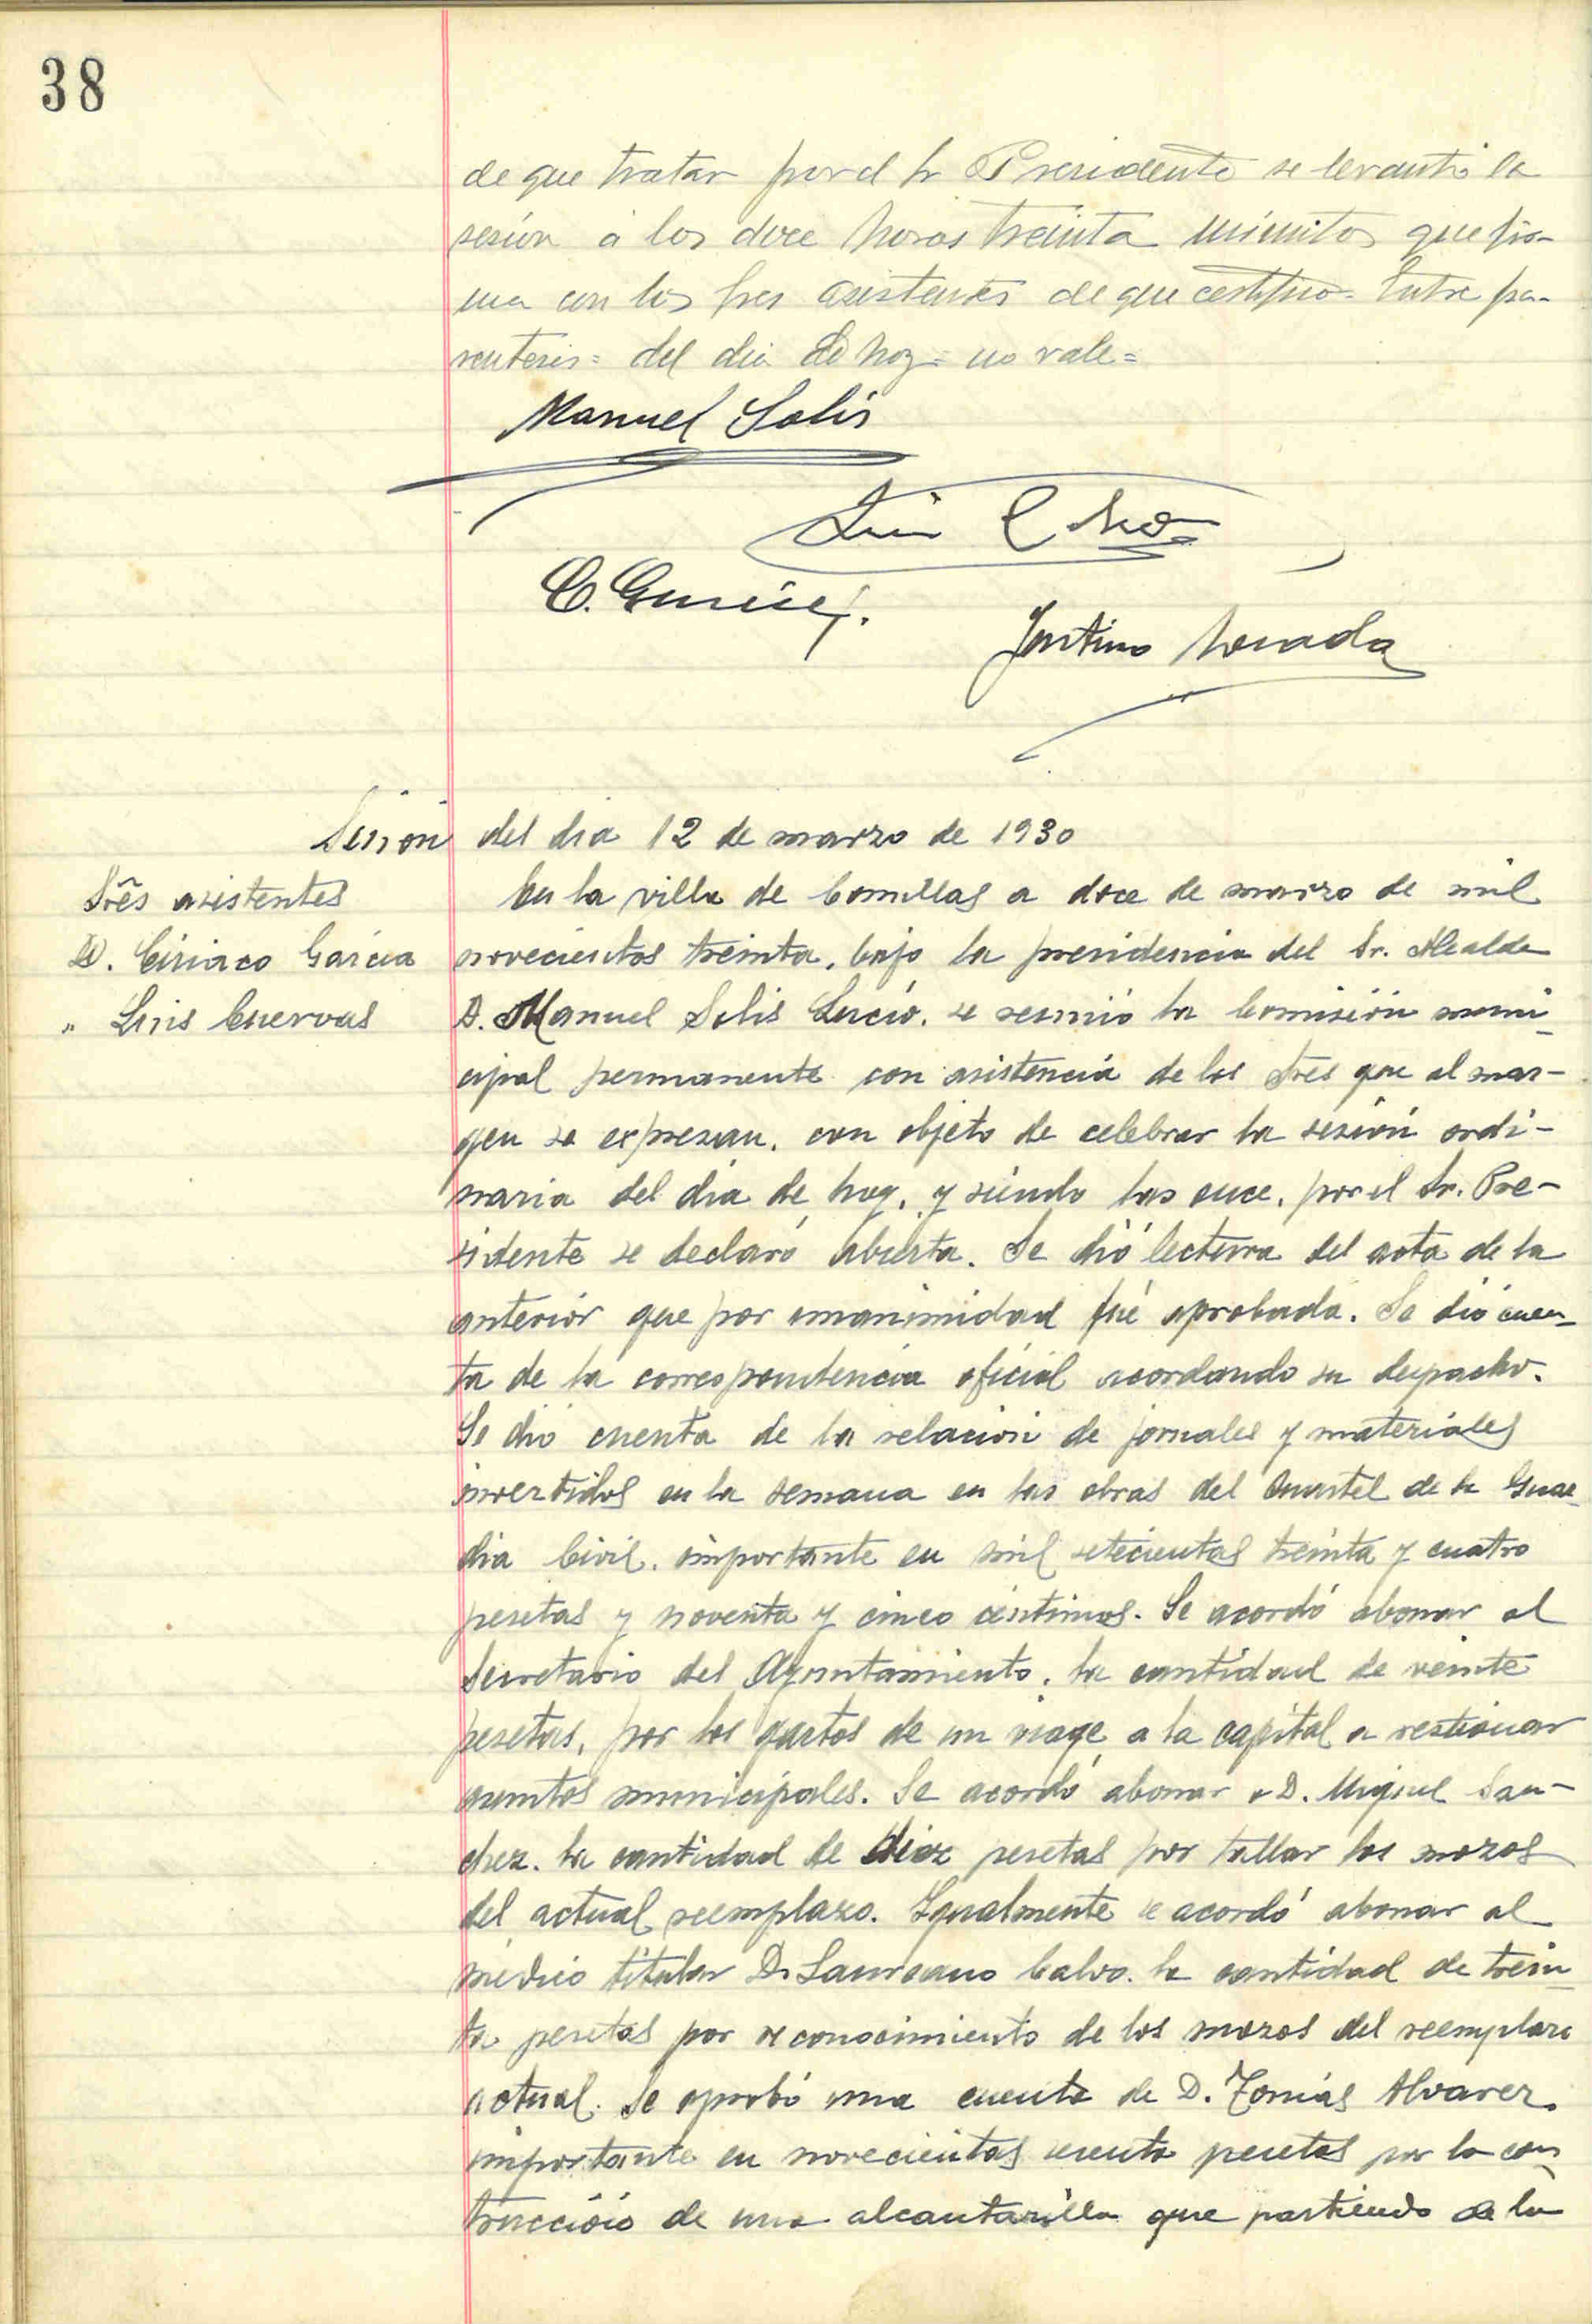 38
de que tratar por el Sr Presidente se levantó la
sesión a las doce horas treinta minutos que fir-
ma con los Sres asistentes de que certifico = Entre pa-
rentesis = del dia de hoy = no vale =
Manuel Solis
Luis
C. García
Justino
Sesión del dia 12 de marzo de 1930
Sres asistentes
D. Ciriaco García
" Luis Cuervas
En la villa de Comillas a doce de marzo de mil
novecientos treinta, bajo la presidencia del Sr. Alcalde
D. Manuel Solis Lucio, se reunió la Comisión muni-
cipal permanente con asistencia de los Sres que al mar-
gen se expresan, con objeto de celebrar la sesión ordi-
naria del dia de hoy, y siendo las once, por el Sr. Pre-
sidente se declaró abierta. Se dió lectura del acta de la
anterior que por unanimidad fué aprobada. Se dió cuen-
ta de la correspondencia oficial acordando su despacho.
Se dió cuenta de la relación de jornales y materiales
invertidos en la semana en las obras del Cuartel de la Guar-
dia Civil, importante en mil setecientas treinta y cuatro
pesetas y noventa y cinco céntimos. Se acordó abonar al
Secretario del Ayuntamiento, la cantidad de veinte
pesetas, por los gastos de un viage a la capital a restionar
asuntos municipales. Se acordó abonar a D. Miguel San-
chez, la cantidad de diez pesetas por tallar los mozos
del actual reemplazo. Igualmente se acordó abonar al
médico titular D. Laureano Calvo, la cantidad de trein-
ta pesetas por reconocimiento de los mozos del reemplazo
actual. Se aprobó una cuenta de D. Tomás Alvarez,
importante en novecientas sesenta pesetas por la cons-
trucción de una alcantarilla que partiendo de la